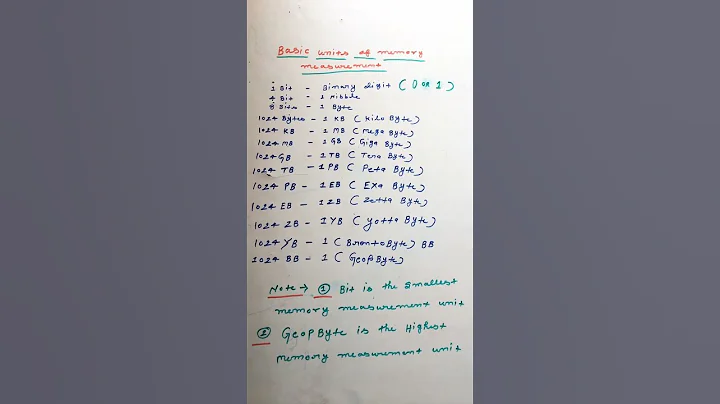 Basic units of memory
measurement
1 Bit - Binary digit (0 OR 1)
4 Bit - 1 Nibble
8 Bits - 1 Byte
1024 Bytes - 1 KB (Kilo Byte)
1024 KB - 1 MB (Mega Byte)
1024 MB - 1 GB (Giga Byte)
1024 GB - 1 TB (Tera Byte)
1024 TB - 1 PB (Peta Byte)
1024 PB - 1 EB (Exa Byte)
1024 EB - 1 ZB (Zetta Byte)
1024 ZB - 1 YB (Yotta Byte)
1024 YB - 1 (BrontoByte) BB
1024 BB - 1 (GeopByte)
Note → ① Bit is the Smallest
memory measurement unit
② GeopByte is the Highest
memory measurement unit